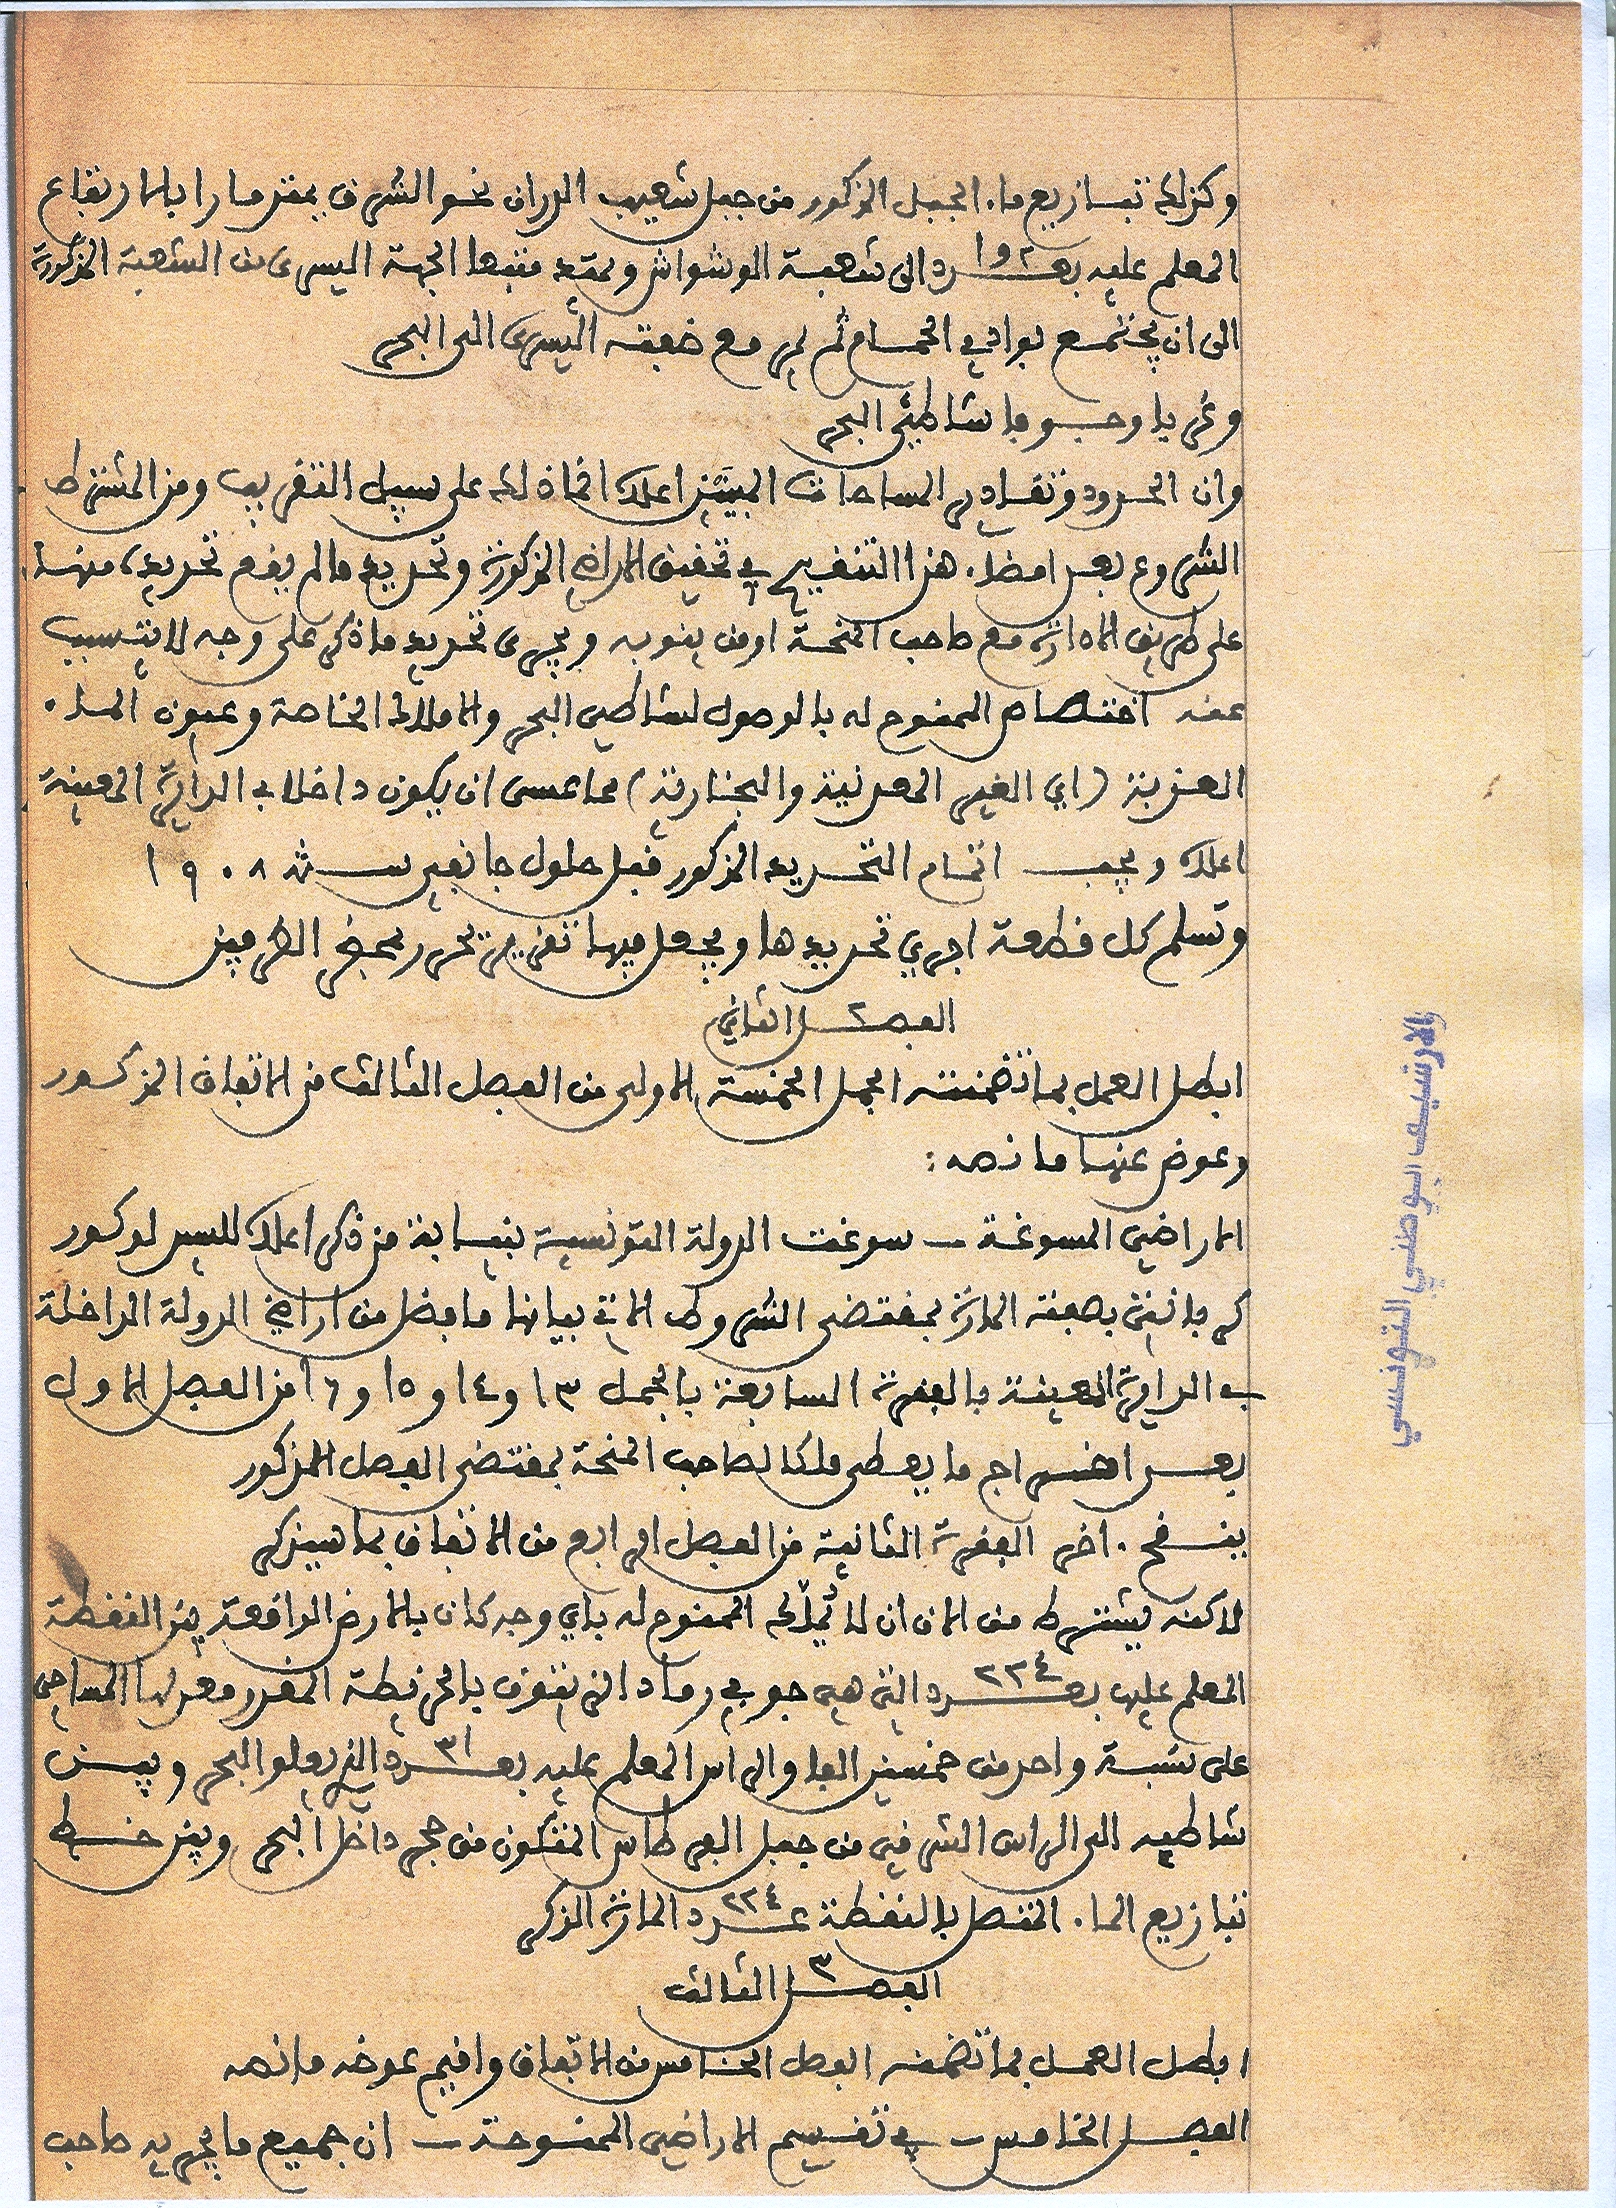 وكذلك تبازيع ماء الجبل المذكور من جبل شعيب الدران نحو الشرق يمتد مارا بالارتفاع
المعلم عليه بعدد ١٩٢ الى شعبة الوشواش ومتى متبعا الجهة اليسرى من الشعبة المذكورة
الى ان يجتمع بوادي الحمام ثم يمر مع ضفته اليسرى الى البحر
وغربا وجوبا شاطئ البحر
وان الحدود وتقادير المساحات المبينين اعلاه انما ذلك على سبيل التقريب ومن المشترط
الشروع بعد امضاء هذا التنقيح في تحقيق الاراضي المذكورة وتحديد ما لم يقع تحديده منها
على طريق الادارة مع صاحب المنحة او من ينوبه ويجرى تحديد ما ذكر على وجه لا يتسبب
عنه اختصاص الممنوح له بالوصول لشاطئ البحر والاملاك الخاصة وعيون الماء
العذبة (اي الغير المعدنية والبخارية) مما عسى ان يكون داخلا في الدايرة المعينة
اعلاه ويجب اتمام التحديد المذكور قبل حلول جانفي سنة ١٩٠٨
وتسلم كل قطعة اجري تحديدها ويجعل فيها تقرير يحرر بمحضر الطرفين
الفصل ٢ الثاني
ابطل العمل بما تضمنته الجمل الخمسة الاولى من الفصل الثالث من الاتفاق المذكور
وعوض عنها ما نصه:
الاراضي المسوغة ــ سوغت الدولة التونسية بنيابة من ذكر اعلاه للسيد لوكور
كربانتي بصفته المارة بمقتضى الشروط الاتي بيانها ما فضل من اراضي الدولة الداخلة
في الدايرة المعينة بالفقرة السابعة بالجمل ١٣ و١٤ و١٥ و١٦ من الفصل الاول
بعد اخراج ما يعطى ملكا لصاحب المنحة بمقتضى الفصل المذكور
ينسخ اخر الفقرة الثانية من الفصل الرابع من الاتفاق بما سيذكر
لاكنه يشترط من الان ان لا يملك الممنوح له باي وجه كان بالارض الواقعة بين النقطة
المعلم عليها بعدد ٢٣٤ التي هي جوفي رماد الزيتون بالخريطة المقرر معدلها المساحي
على نسبة واحد من خمسين الفا والراس المعلم عليه بعدد ٣١ الذي يعلو البحر وبين
شاطيه الى الراس الشرقي من جبل القرطاس المتكون من حجر داخل البحر وبين خط
تبازيع الماء المتصل بالنقطة عدد ٢٣٤ المارة الذكر
الفصل ٣ الثالث
ابطل العمل بما تضمنه الفصل الخامس من الاتفاق واقيم عوضه ما نصه
الفصل الخامس ــ في تقسيم الاراضي الممنوحة ــ ان جميع ما يجريه صاحب
الارشيف الوطني التونسي